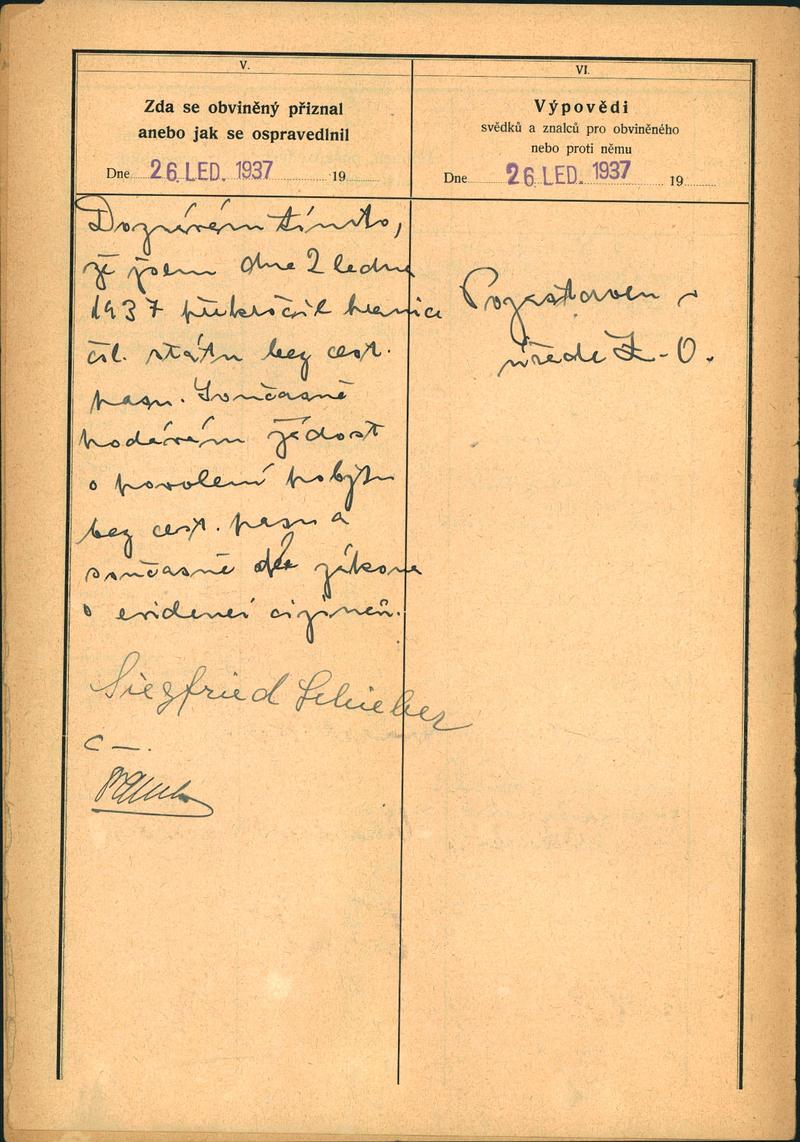 V.
Zda se obviněný přiznal
anebo jak se ospravedlnil
Dne 26. LED. 1937 19
Doznávám tímto,
že jsem dne 2 ledna
1937 překročil hranice
čsl. státu bez cest.
pasu. Současně
podávám žádost
o povolení pobytu
bez cest. pasu a
současně dle zákona
o evidenci cizinců.
Siegfried Schieber
VI.
Výpovědi
svědků a znalců pro obviněného
nebo proti němu
Dne 26. LED. 1937 19
Pozastaven v
úřadě Z-O.